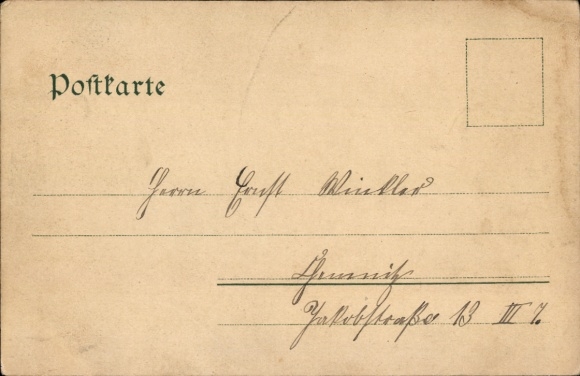 Postkarte
Herrn Ernst Winkler
Chemnitz
Jakobstraße 13 III 7.